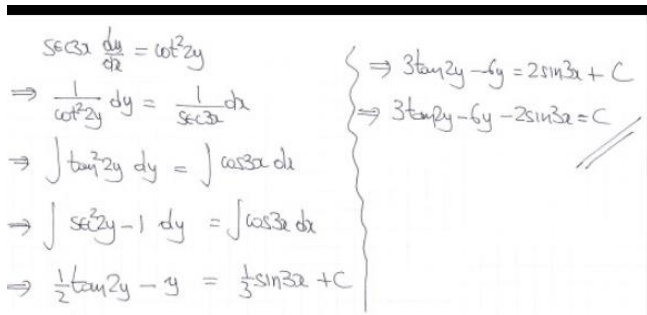 sec3x dy/dx = cot²2y
⇒ 1/cot²2y dy = 1/sec3x dx
⇒ ∫ tan²2y dy = ∫ cos3x dx
⇒ ∫ sec²2y - 1 dy = ∫ cos3x dx
⇒ 1/2 tan2y - y = 1/3 sin3x + C
⇒ 3tan2y - 6y = 2sin3x + C
⇒ 3tan2y - 6y - 2sin3x = C